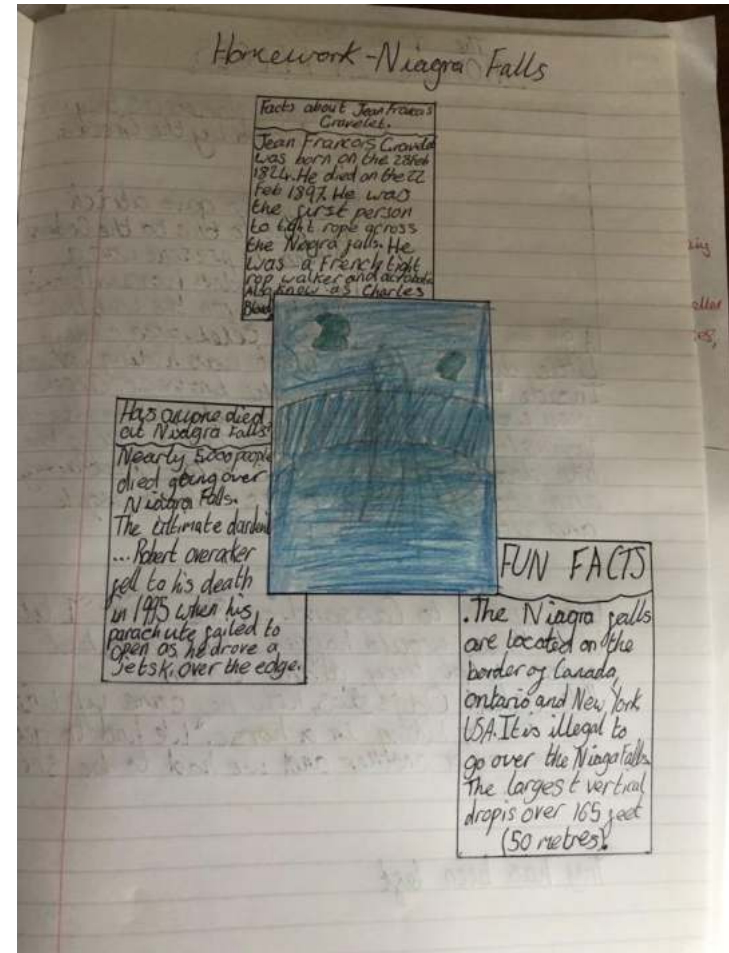 Homework - Niagra Falls
Facts about Jean Francois
Gravelet.
Jean Francois Gravelet
was born on the 28 Feb
1824. He died on the 22
Feb 1897. He was
the first person
to tight rope across
the Niagra falls. He
was a French tight
rop walker and acrobatic
Also know as Charles
Has anyone died
at Niagra Falls?
Nearly 5000 people
died going over
Niagra Falls.
The ultimate daredevil
... Robert overacker
fell to his death
in 1995 when his
parachute failed to
open as he drove a
Jetski over the edge.
FUN FACTS
. The Niagra falls
are located on the
border of Canada,
ontario and New York
USA. It is illegal to
go over the Niaga Falls.
The largest vertical
drop is over 165 feet
(50 metres).